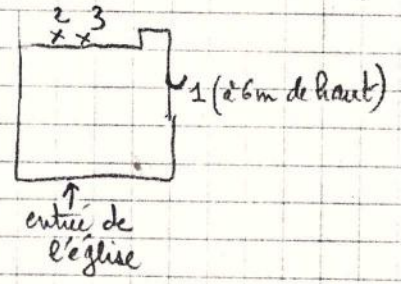 2 3
1 (à 6m de haut)
entrée de
l'église